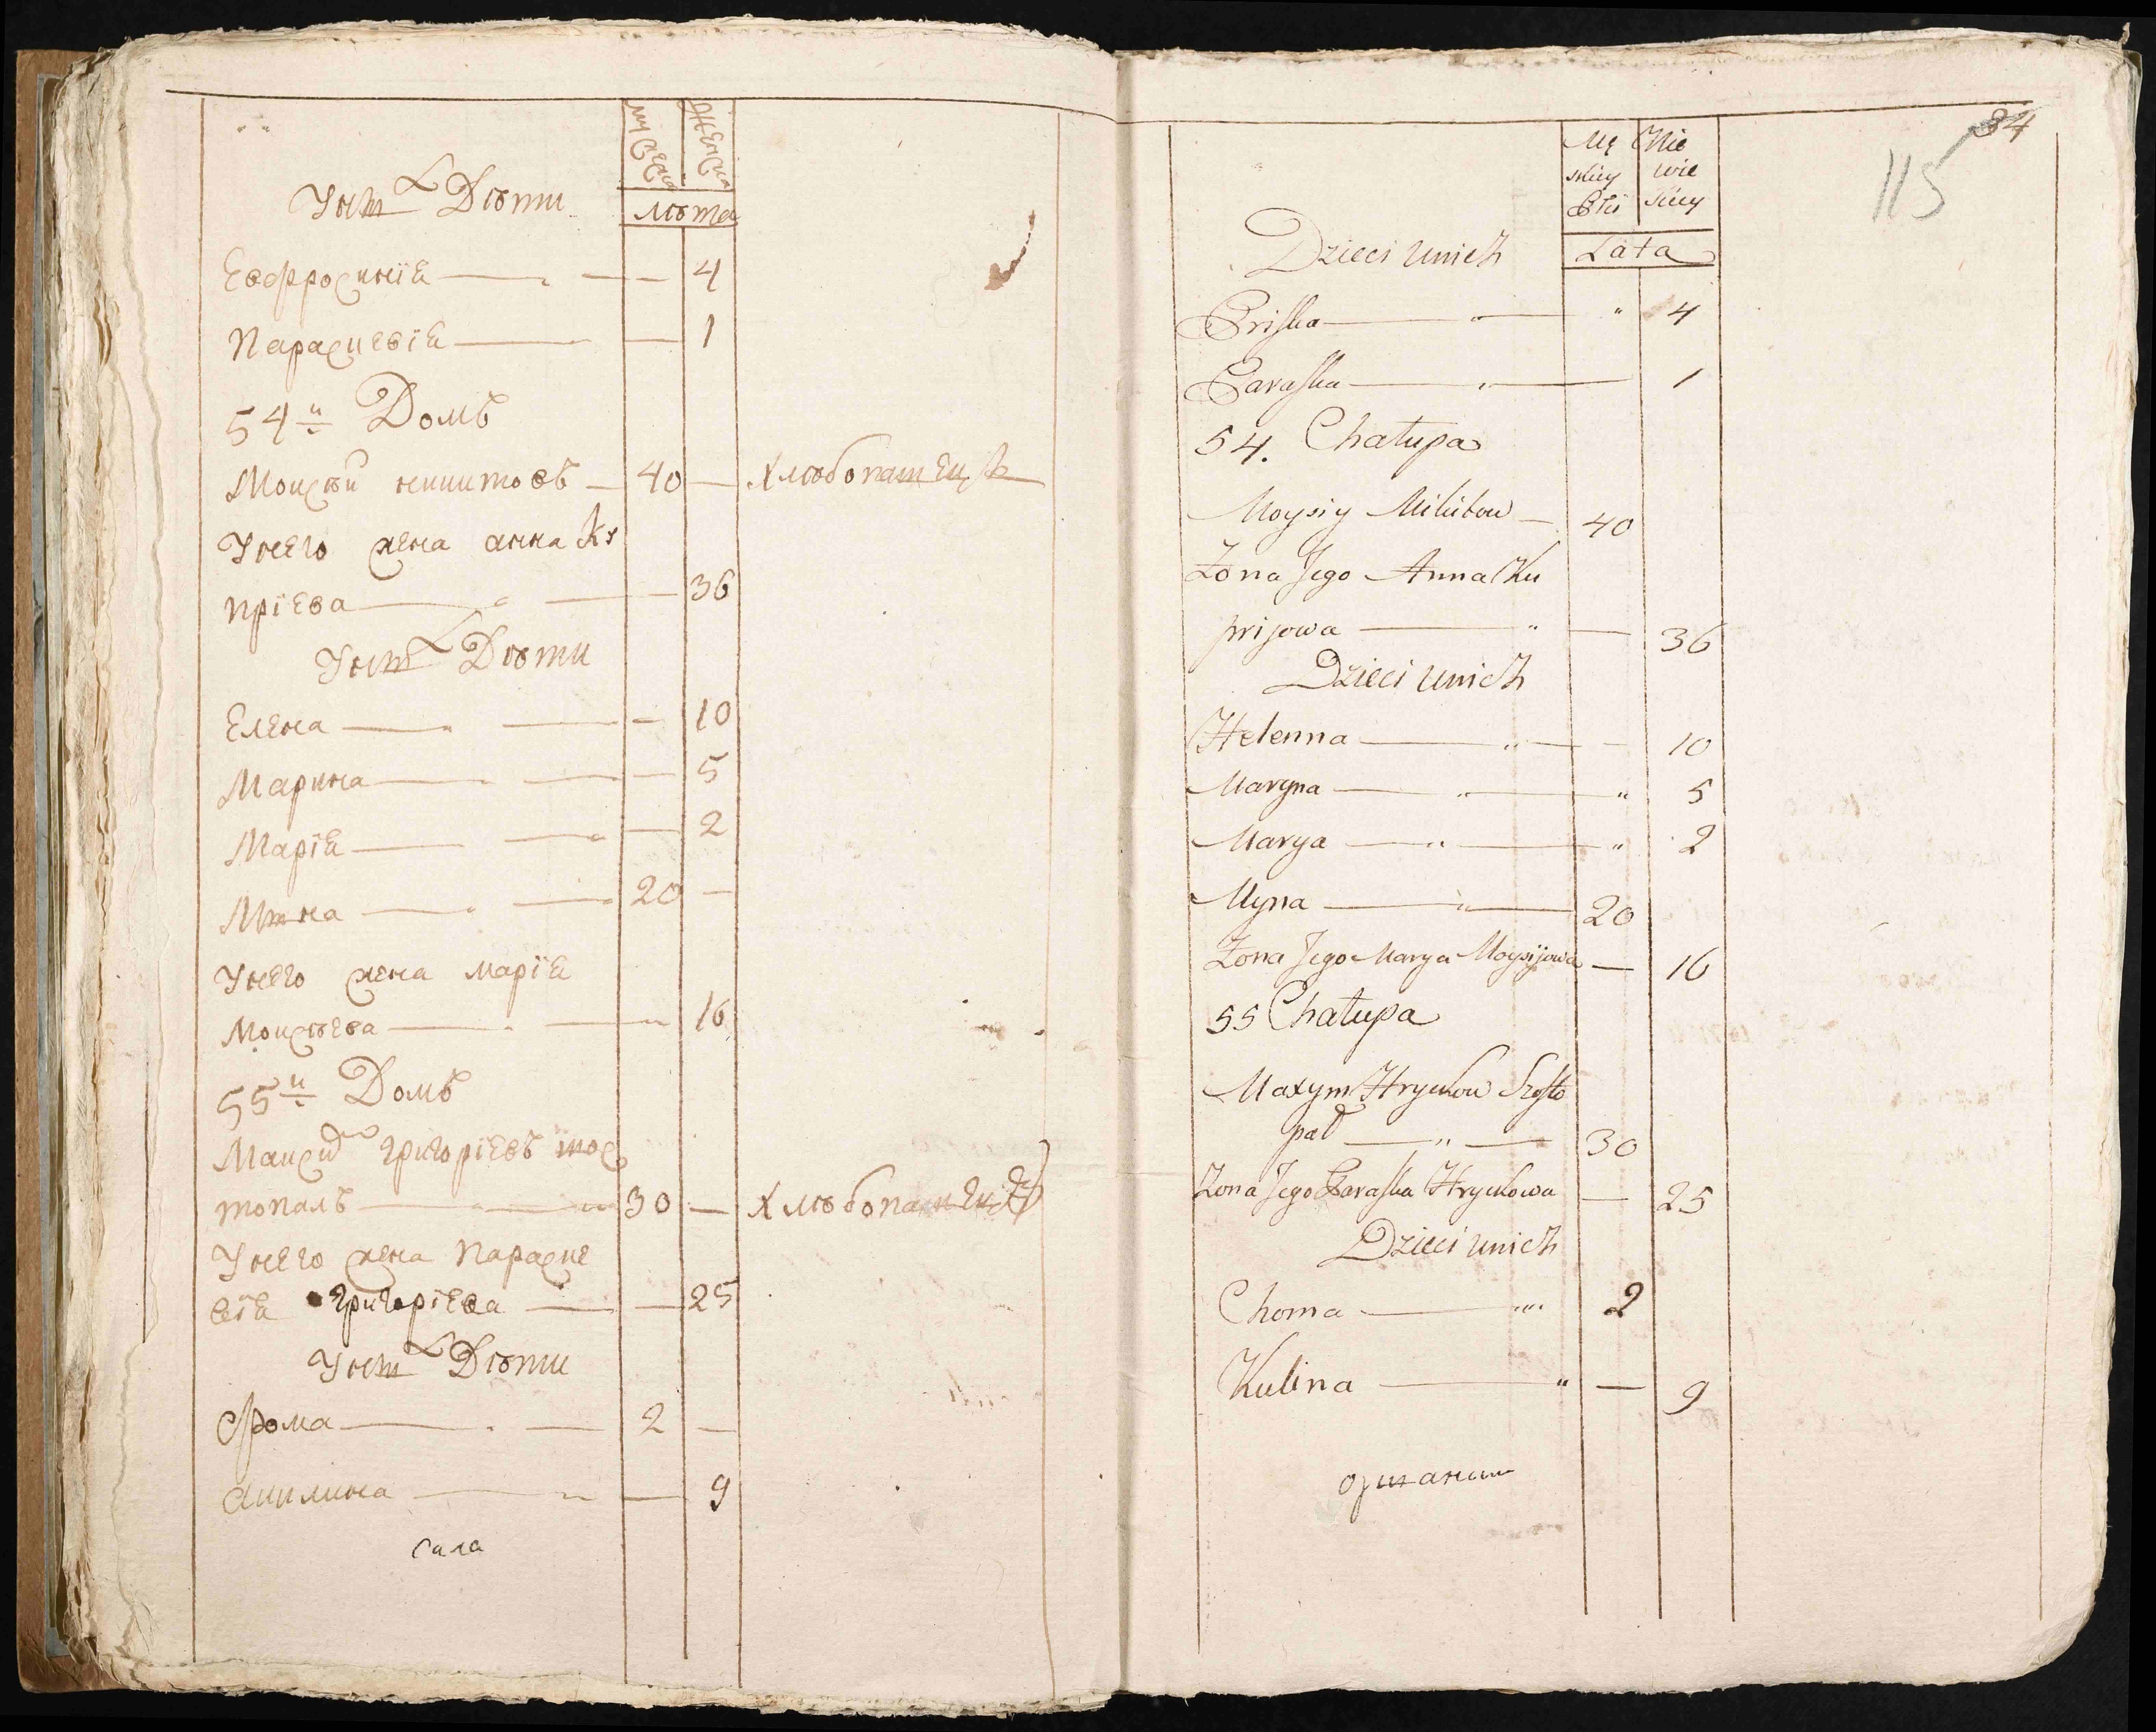 мужеска
женска
У них Дѣти
лѣта
Евфросинїя 4
Параскевїя 1
54й Домъ
Моисѣй никитовъ 40 хлѣбопашецъ
У него жена анна Ку
прїева 36
У них Дѣти
Елена 10
Марина 5
Марїя 2
Мина 20
У него жена марїя
моисѣева 16
55й Домъ
Максим григорїевъ шос
топалъ 30 хлѣбопашецъ
У него жена Параске
вїя григорїева 25
У них Дѣти
Фома 2
акилина 9
84
115
Mę Nie
skiey wie
Płci skiey
Dzieci unich Lata
Priska 4
Paraska 1
54. Chałupa
Moysiy Mikitow 40
Żona Jego Anna Ku
prijowa 36
Dzieci unich
Helenna 10
Maryna 5
Marya 2
Myna 20
Żona Jego Marya Moysijowa 16
55 Chałupa
Maxym Hryckow Szosto
pał 30
Żona Jego Paraska Hryckowa 25
Dzieci unich
Choma 2
Kulina 9